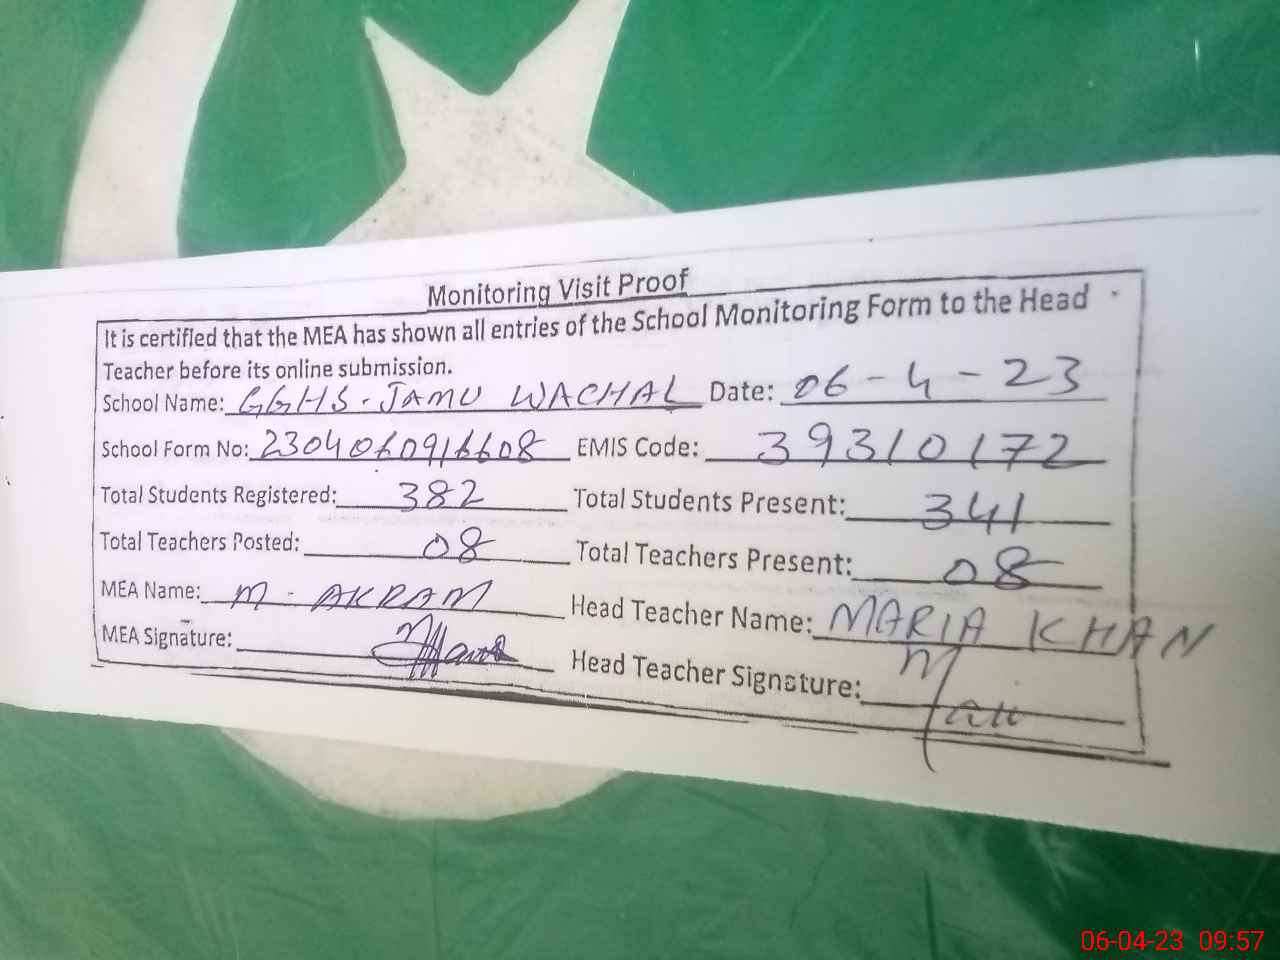 Monitoring Visit Proof
It is certified that the MEA has shown all entries of the School Monitoring Form to the Head
Teacher before its online submission.
School Name: GGHS-JAMU WACHAL Date: 06-4-23
School Form No: 2304060916608 EMIS Code: 39310172
Total Students Registered: 382 Total Students Present: 341
Total Teachers Posted: 08 Total Teachers Present: 08
MEA Name: M-AKRAM Head Teacher Name: MARIA KHAN
MEA Signature: Head Teacher Signature:
06-04-23 09:57